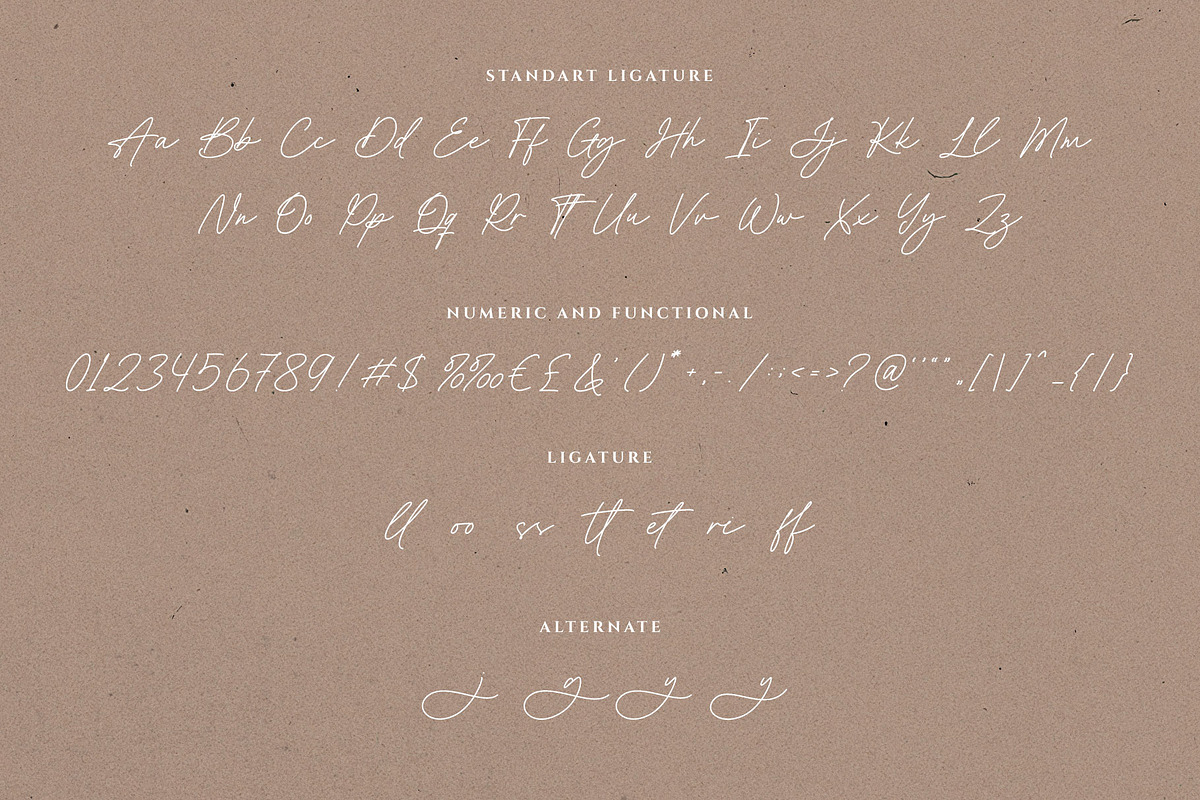 STANDART LIGATURE
Aa Bb Cc Dd Ee Ff Gg Hh Ii Jj Kk Ll Mm
Nn Oo Pp Qq Rr Tt Uu Vv Ww Xx Yy Zz
NUMERIC AND FUNCTIONAL
0123456789!#$%‰€£&'()*+,-./:;<=>?@‘’“”„[\]^_{|}
LIGATURE
ll oo ss tt et ri ff
ALTERNATE
j g y y